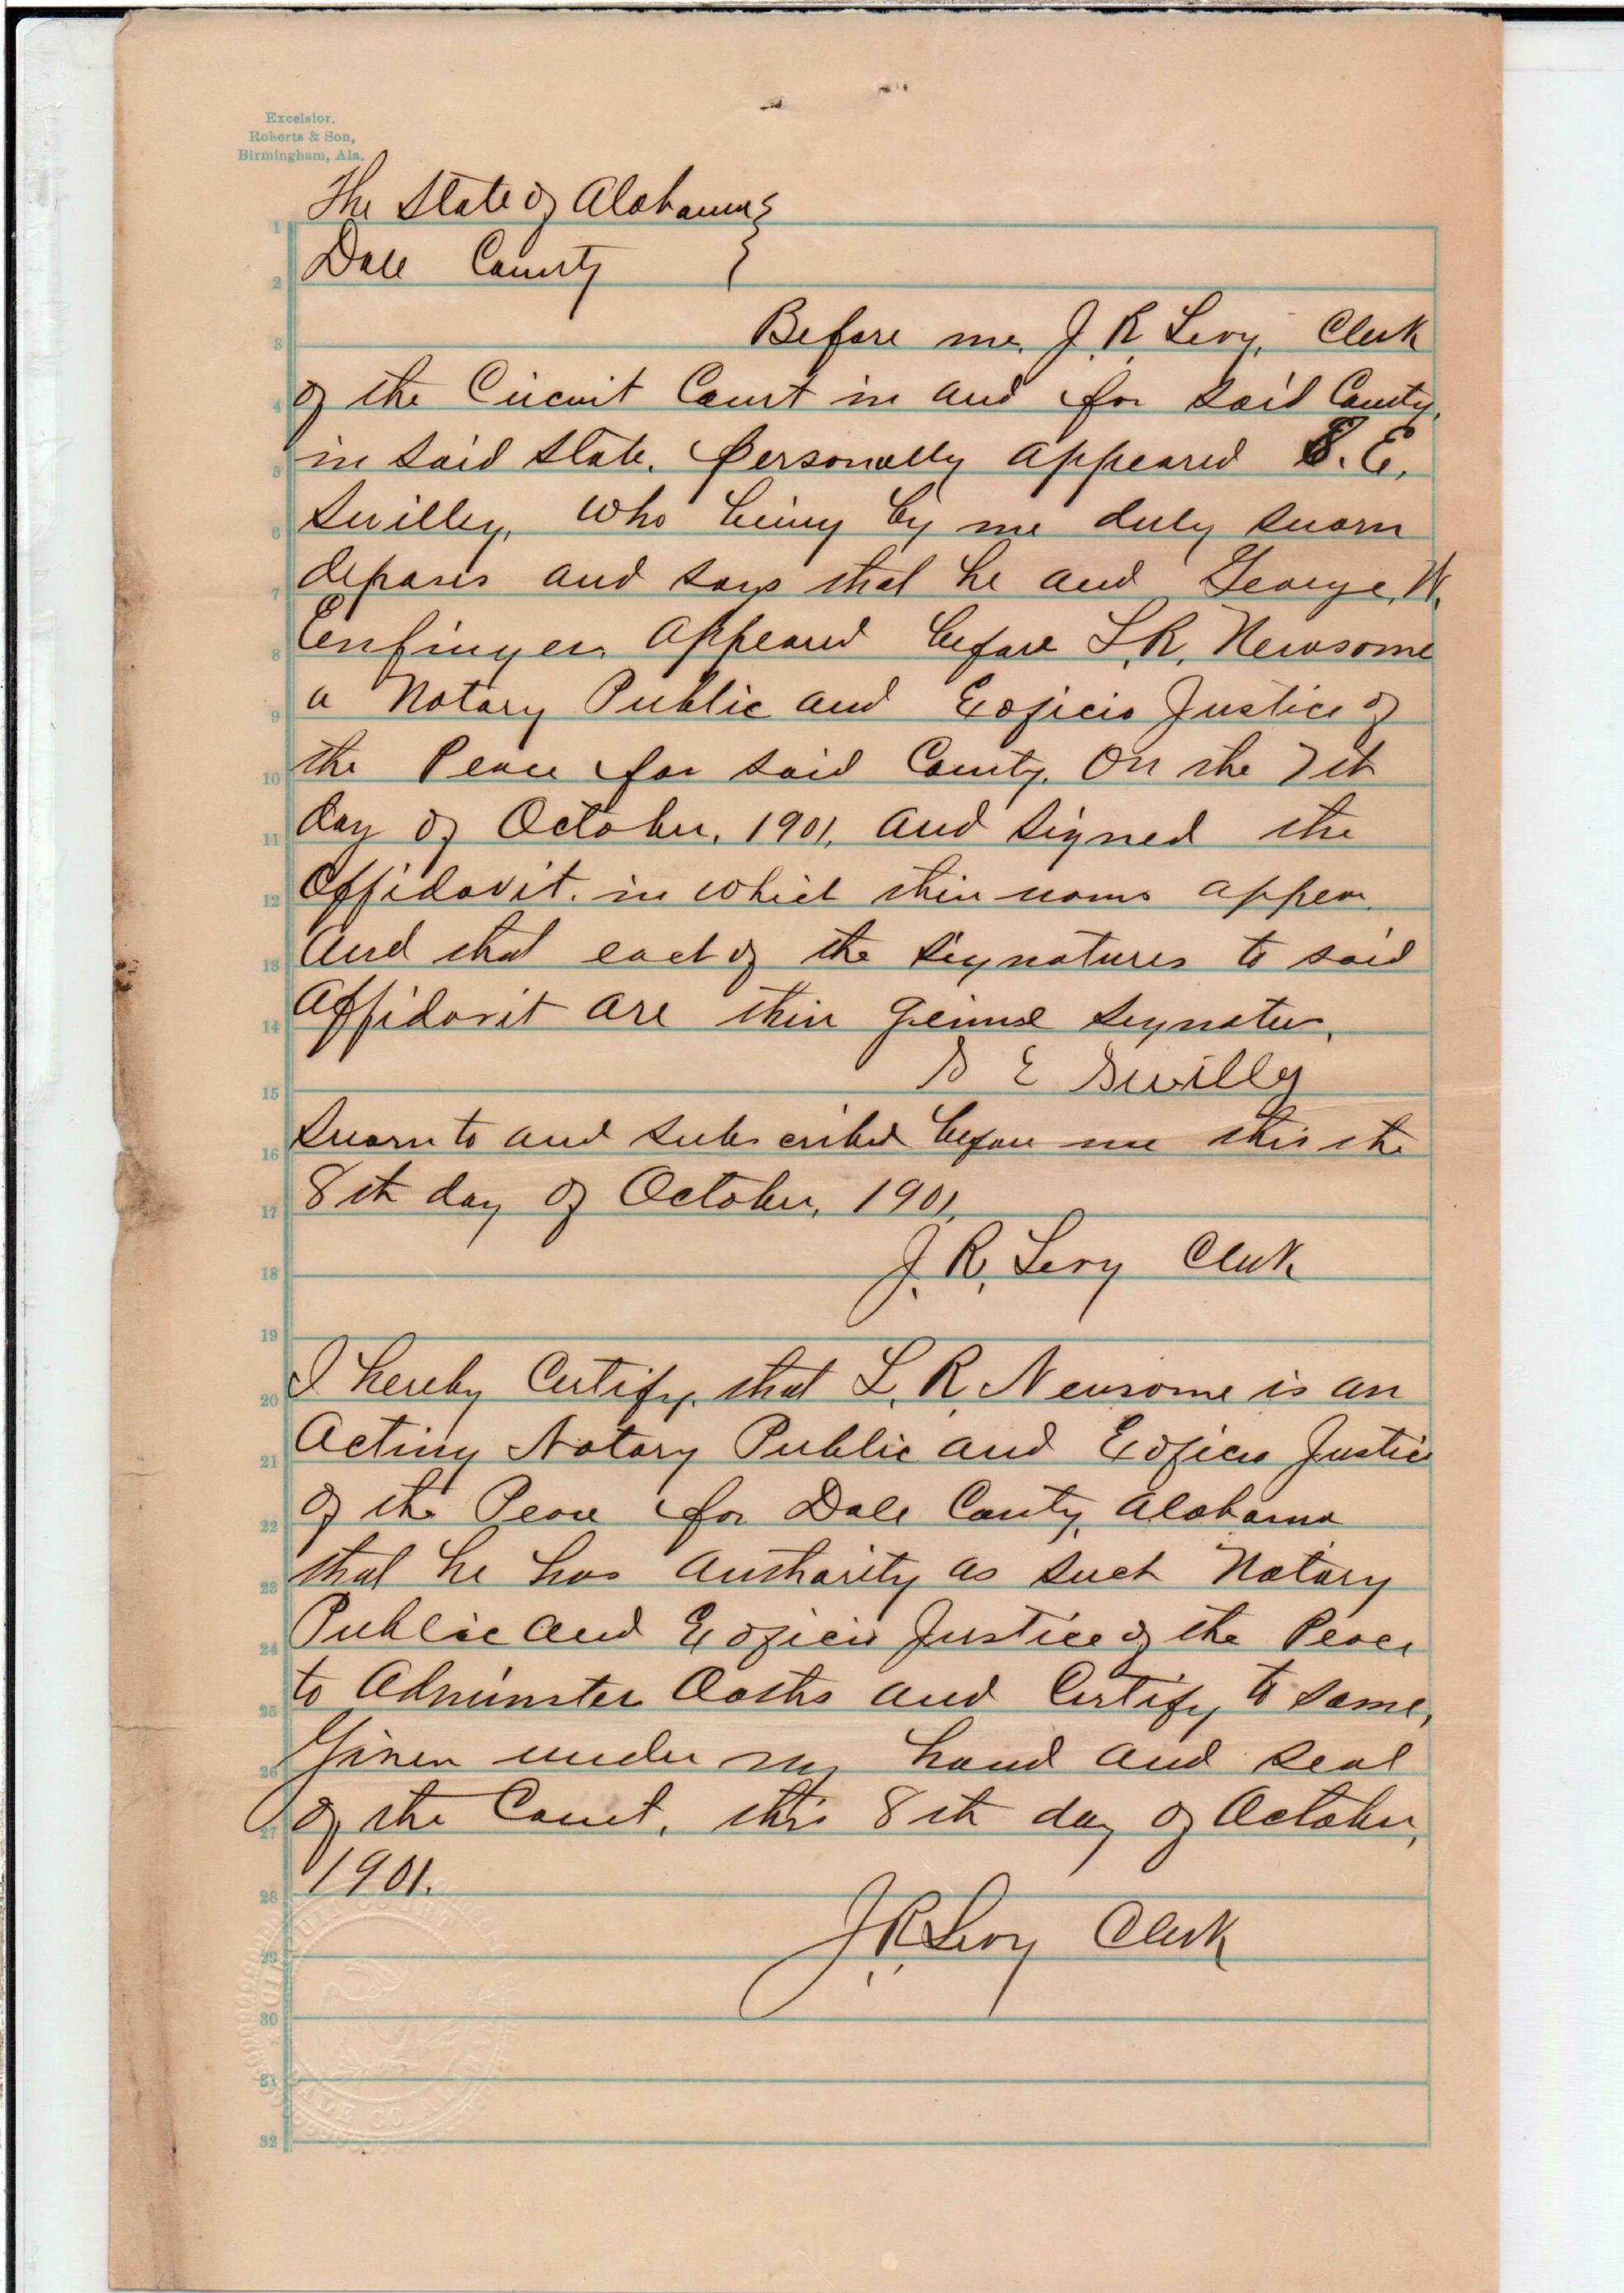 Excelsior.
Roberts & Son,
Birmingham, Ala.
The State of Alabama }
Dale County }
1
2
3 Before me, J. R. Levy, Clerk
4 of the Circuit Court in and for said County,
5 in said State, personally appeared S. E.
6 Swilley, who being by me duly sworn
7 deposes and says that he and George W.
8 Enfinger appeared before L. R. Newsome
9 a Notary Public and Exoficio Justice of
10 the Peace for said County, On the 7th
11 day of October, 1901, and signed the
12 Affidavit in which thier names appear,
13 And that each of the signatures to said
14 Affidavit are thier
15 S E Swilley
16 Sworn to and subscribed before me this the
17 8th day of October, 1901,
18 J. R. Levy Clerk
19
20 I hereby Certify, that L. R. Newsome is an
21 Acting Notary Public and Exoficio Justice
22 of the Peace for Dale County, Alabama
23 that he has authority as such Notary
24 Public and Exoficio Justice of the Peace
25 to Adminster Oaths and Certify to same,
26 Given under my hand and seal
27 of the Court, this 8th day of October,
28 1901.
29 J. R. Levy Clerk
30
31
32